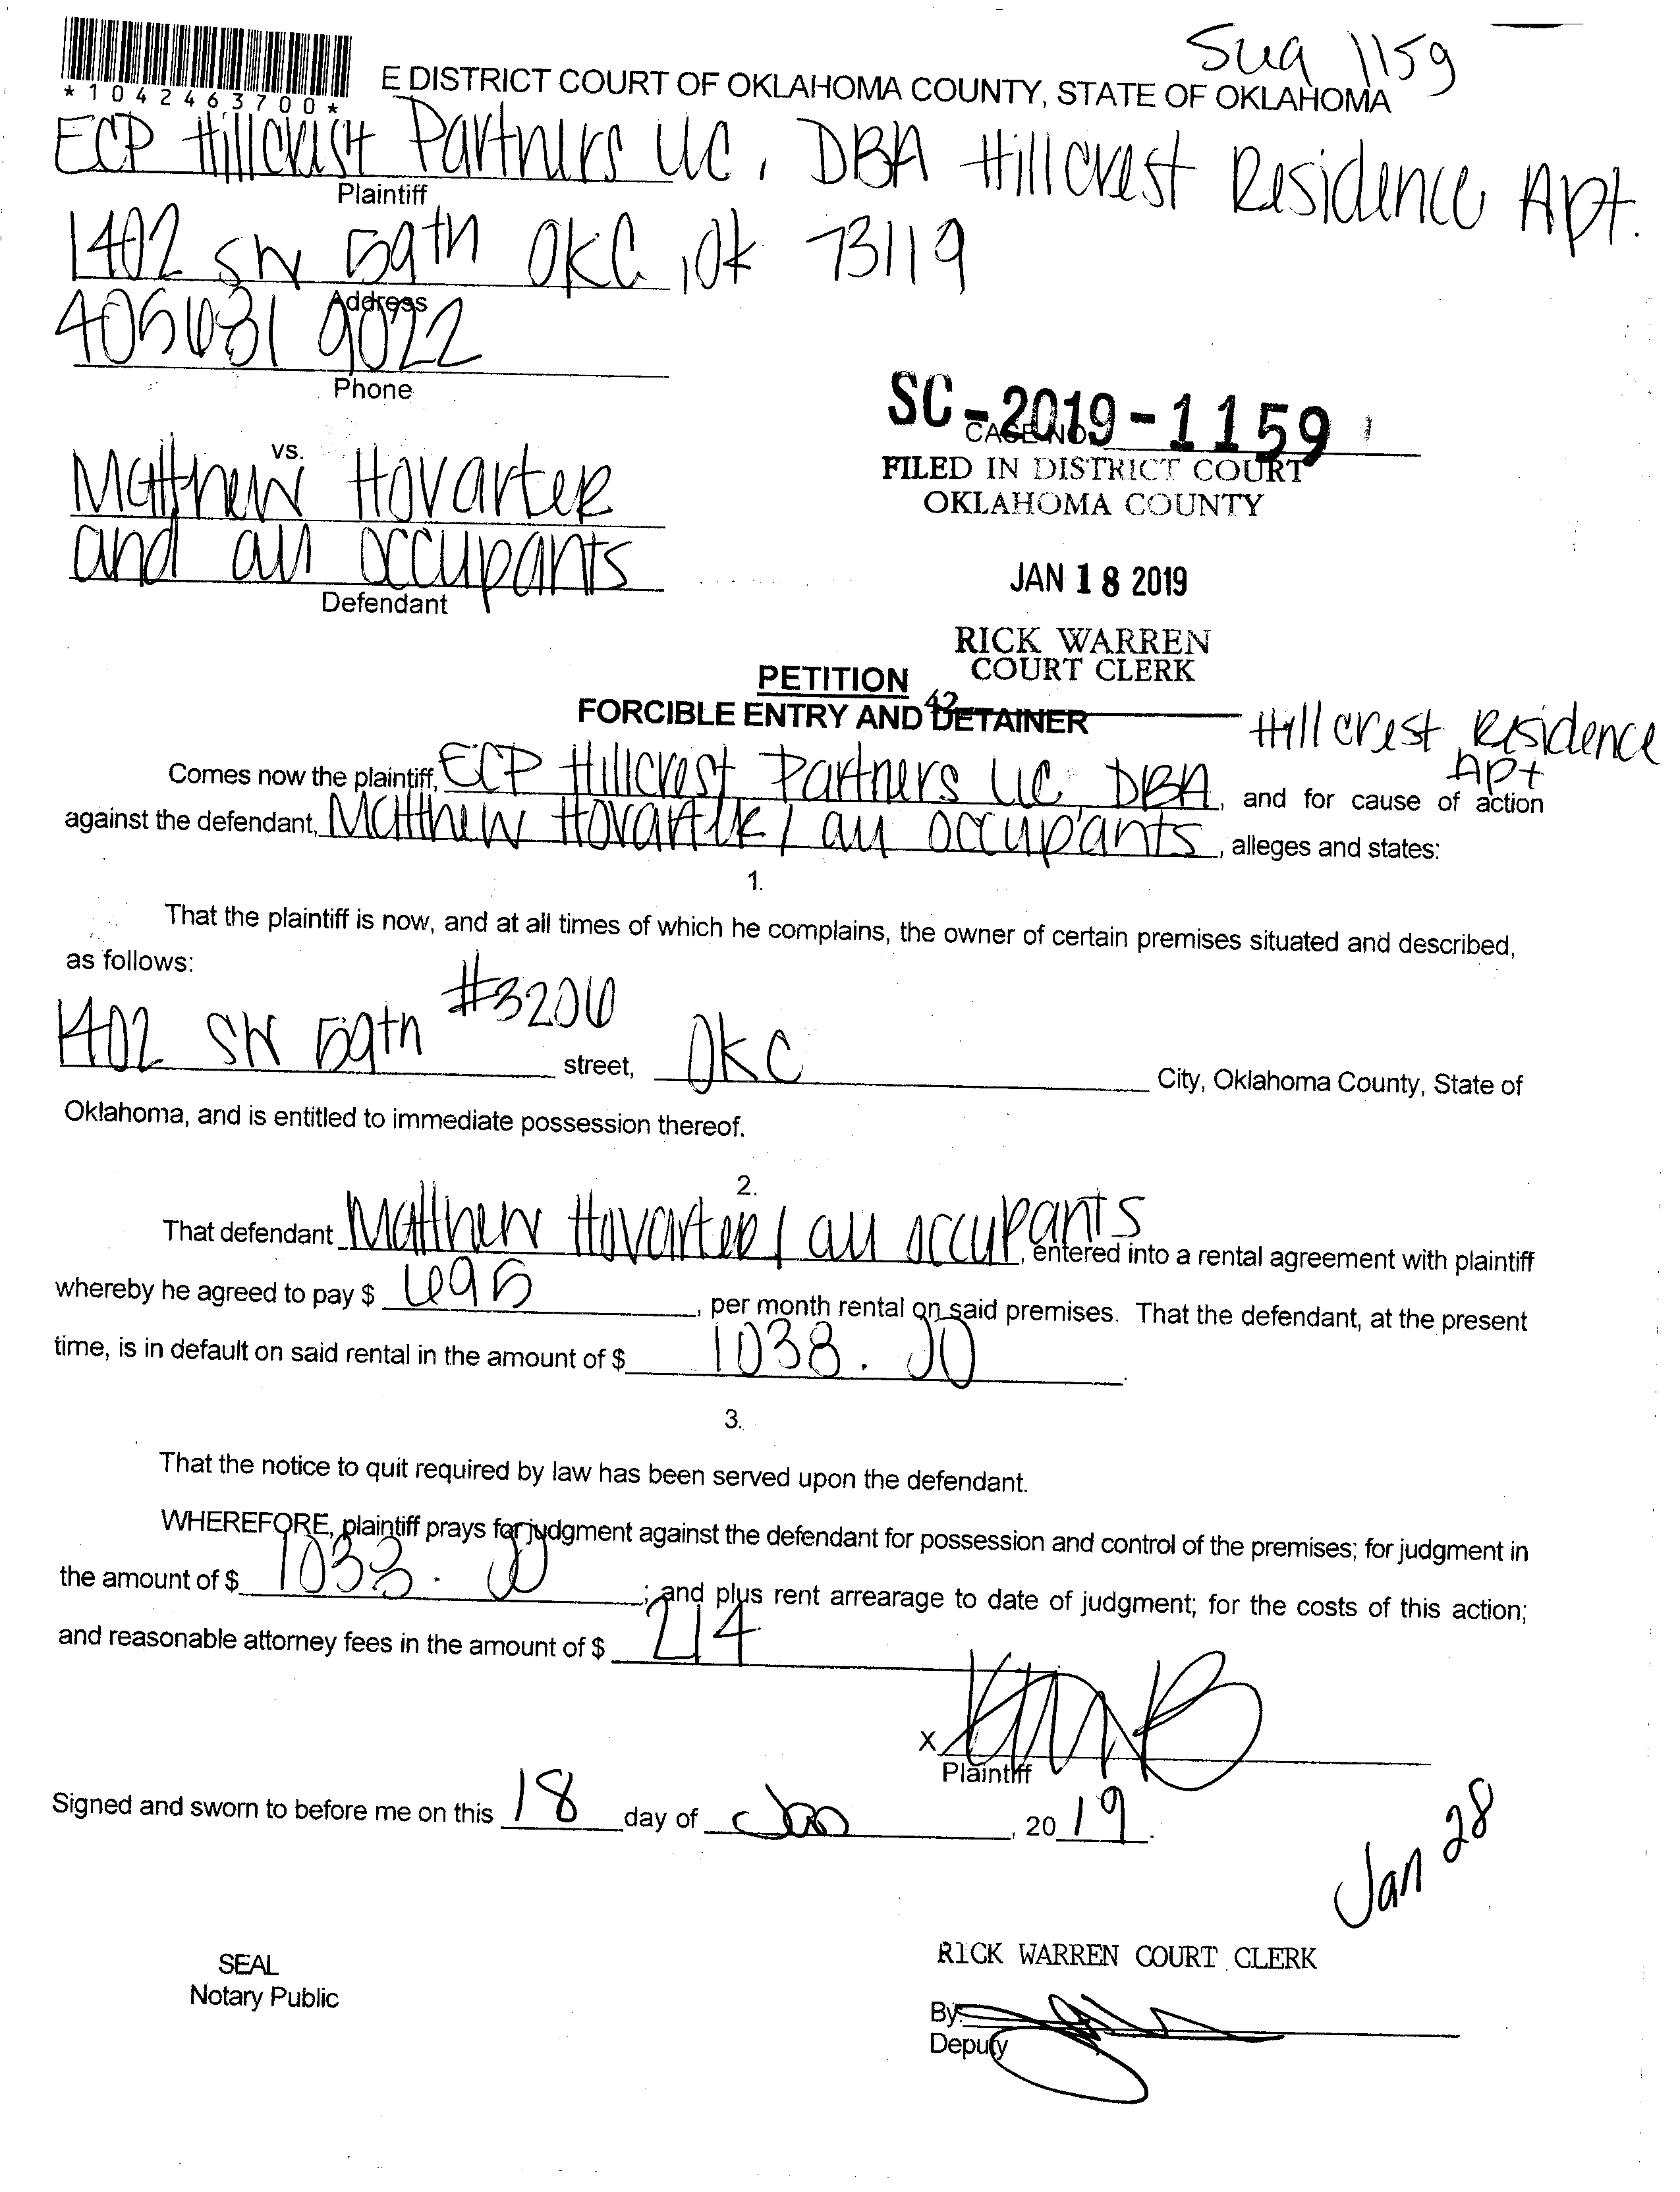 Sua 1159
*1042463700*
E DISTRICT COURT OF OKLAHOMA COUNTY, STATE OF OKLAHOMA
ECP Hillcrest Partners LLC, DBA Hillcrest Residence Apt.
Plaintiff
1402 SW 59th OKC, Ok 73119
Address
405 631 9022
Phone
SC-2019-1159
CASE NO.
vs.
FILED IN DISTRICT COURT
OKLAHOMA COUNTY
Matthew Hovarter
and all occupants
Defendant
JAN 18 2019
RICK WARREN
COURT CLERK
PETITION
42
FORCIBLE ENTRY AND DETAINER
Hillcrest Residence
Apt
Comes now the plaintiff, ECP Hillcrest Partners LLC, DBA, and for cause of action
against the defendant, Matthew Hovarter / all occupants, alleges and states:
1.
That the plaintiff is now, and at all times of which he complains, the owner of certain premises situated and described,
as follows:
1402 SW 59th #3206 street, OKC City, Oklahoma County, State of
Oklahoma, and is entitled to immediate possession thereof.
2.
That defendant Matthew Hovarter / all occupants, entered into a rental agreement with plaintiff
whereby he agreed to pay $ 695, per month rental on said premises. That the defendant, at the present
time, is in default on said rental in the amount of $ 1038.00.
3.
That the notice to quit required by law has been served upon the defendant.
WHEREFORE, plaintiff prays for judgment against the defendant for possession and control of the premises; for judgment in
the amount of $ 1038.00; and plus rent arrearage to date of judgment; for the costs of this action;
and reasonable attorney fees in the amount of $ 214
X
Plaintiff
Signed and sworn to before me on this 18 day of Jan, 2019.
Jan 28
RICK WARREN COURT CLERK
SEAL
Notary Public
By:
Deputy